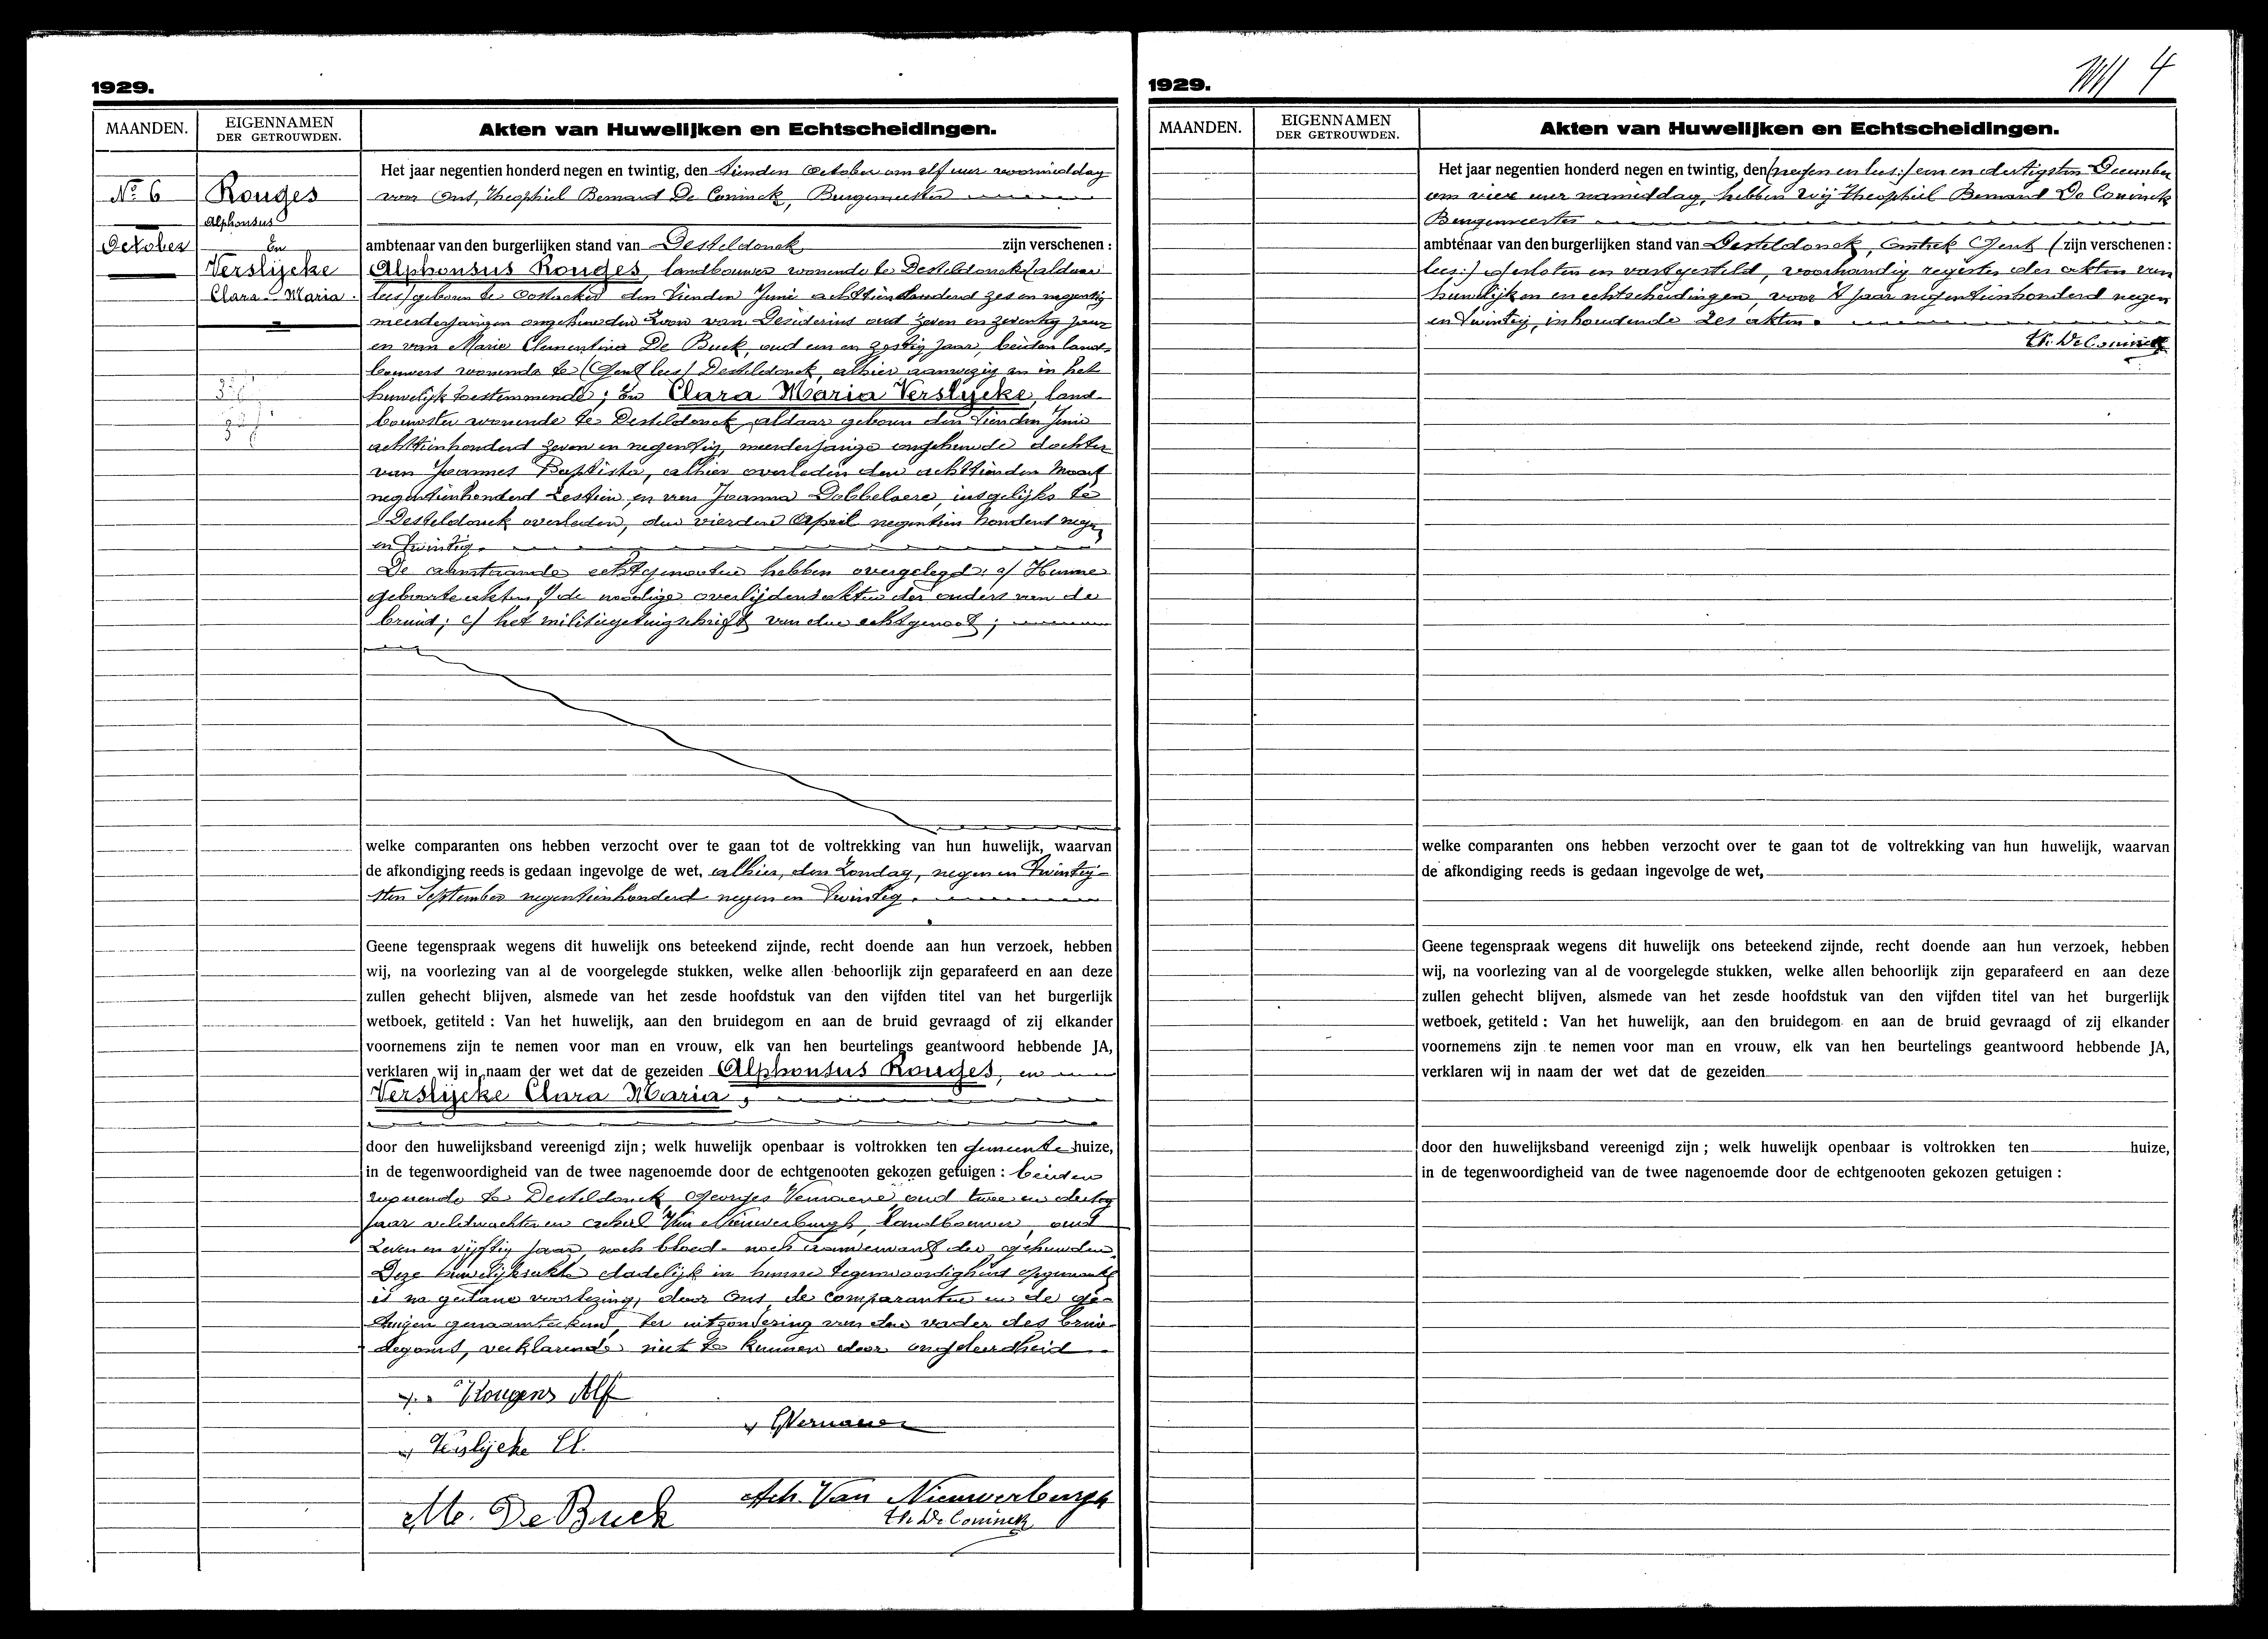 1929.
MAANDEN.
EIGENNAMEN
DER GETROUWDEN.
Akten van Huwelijken en Echtscheidingen.
No 6
October
Rouges
Alphonsus
En
Verslijcke
Clara-Maria.
Het jaar negentien honderd negen en twintig, den tienden October om elf uur voormiddag
voor Ons, Theophiel Bernard De Coninck, Burgemeester
ambtenaar van den burgerlijken stand van Desteldonck zijn verschenen :
Alphonsus Rouges, landbouwer wonende te Desteldonck (aldaar
lees) geboren te Oostacker den tienden Juni achttienhonderd zes en negentig
meerderjarigen ongehuwden zoon van Desiderius oud zeven en zeventig jaar
en van Marie Clementina De Buck, oud een en zestig jaar, beiden land-
bouwers wonende te (Gent lees) Desteldonck, alhier aanwezig en in het
huwelijk toestemmende; En Clara Maria Verslijcke, land-
bouwster wonende te Desteldonck, aldaar geboren den tienden Juni
achttienhonderd zeven en negentig, meerderjarige ongehuwde dochter
van Joannes Baptista, alhier overleden den achttienden Maart
negentienhonderd zestien, en van Joanna Dobbelaere, insgelijks te
Desteldonck overleden, den vierden April negentien honderd negen
en twintig.
De aanstaande echtgenooten hebben overgelegd: a/ Hunne
geboorteakten; de noodige overlijdensakten der ouders van de
bruid; c/ het militiegetuigschrift van den echtgenoot;
welke comparanten ons hebben verzocht over te gaan tot de voltrekking van hun huwelijk, waarvan
de afkondiging reeds is gedaan ingevolge de wet, alhier, den Zondag, negen en twintig-
sten September negentienhonderd negen en twintig.
Geene tegenspraak wegens dit huwelijk ons beteekend zijnde, recht doende aan hun verzoek, hebben
wij, na voorlezing van al de voorgelegde stukken, welke allen behoorlijk zijn geparafeerd en aan deze
zullen gehecht blijven, alsmede van het zesde hoofdstuk van den vijfden titel van het burgerlijk
wetboek, getiteld : Van het huwelijk, aan den bruidegom en aan de bruid gevraagd of zij elkander
voornemens zijn te nemen voor man en vrouw, elk van hen beurtelings geantwoord hebbende JA,
verklaren wij in naam der wet dat de gezeiden Alphonsus Rouges, en
Verslijcke Clara Maria,
door den huwelijksband vereenigd zijn ; welk huwelijk openbaar is voltrokken ten gemeente huize,
in de tegenwoordigheid van de twee nagenoemde door de echtgenooten gekozen getuigen : beiden
wonende te Desteldonck, Georges Vernaeve, oud twee en dertig
jaar veldwachter en Achiel Van Nieuwerburgh, landbouwer, oud
zeven en vijftig jaar, noch bloed- noch aanverwant der gehuwden.
Deze huwelijksakte dadelijk in hunne tegenwoordigheid opgemaakt
is na gedane voorlezing, door Ons, de comparanten en de ge-
tuigen genaamteekend, ter uitzondering van den vader des brui-
degoms, verklarende niet te kunnen door ongeleerdheid.
Rougens Alf
G Vernaeve
Verslijcke Cl.
Ach. Van Nieuwerburgh
M. De Buck
Th. De Coninck
1929.
4
MAANDEN.
EIGENNAMEN
DER GETROUWDEN.
Akten van Huwelijken en Echtscheidingen.
Het jaar negentien honderd negen en twintig, den (negen en lees:) een en dertigsten December
om vier uur namiddag, hebben Wij Theophiel Bernard De Coninck
Burgemeester
ambtenaar van den burgerlijken stand van Desteldonck, Omtrek Gent (zijn verschenen :
lees:) gesloten en vastgesteld, voorhandig register der akten van
huwelijken en echtscheidingen, voor 't jaar negentienhonderd negen
en twintig, inhoudende zes akten.
Th. De Coninck
welke comparanten ons hebben verzocht over te gaan tot de voltrekking van hun huwelijk, waarvan
de afkondiging reeds is gedaan ingevolge de wet,
Geene tegenspraak wegens dit huwelijk ons beteekend zijnde, recht doende aan hun verzoek, hebben
wij, na voorlezing van al de voorgelegde stukken, welke allen behoorlijk zijn geparafeerd en aan deze
zullen gehecht blijven, alsmede van het zesde hoofdstuk van den vijfden titel van het burgerlijk
wetboek, getiteld : Van het huwelijk, aan den bruidegom en aan de bruid gevraagd of zij elkander
voornemens zijn te nemen voor man en vrouw, elk van hen beurtelings geantwoord hebbende JA,
verklaren wij in naam der wet dat de gezeiden
door den huwelijksband vereenigd zijn ; welk huwelijk openbaar is voltrokken ten huize,
in de tegenwoordigheid van de twee nagenoemde door de echtgenooten gekozen getuigen :